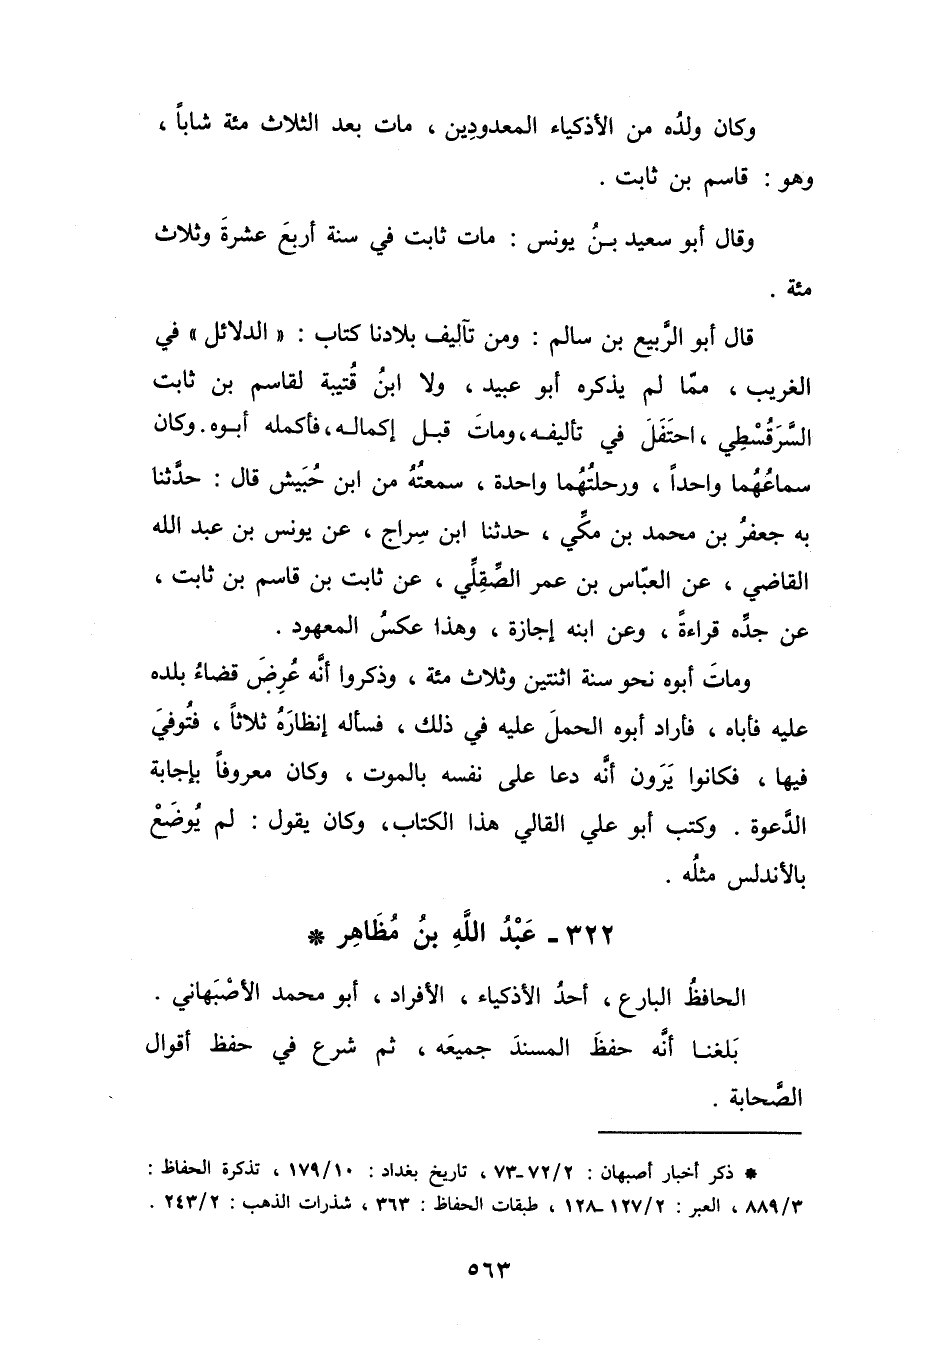 وكان ولدُه من الأذكياء المعدودِين ، مات بعد الثلاث مئة شاباً ،
وهو : قاسم بن ثابت .
وقال أبو سعيد بنُ يونس : مات ثابت في سنة أربعَ عشرةَ وثلاث
مئة .
قال أبو الرَّبيع بن سالم : ومن تآليف بلادنا كتاب : « الدلائل » في
الغريب ، ممّا لم يذكره أبو عبيد ، ولا ابنُ قُتيبة لقاسم بن ثابت
السَّرَقُسْطِي ، احتَفَلَ في تأليفه، وماتَ قبل إكماله، فأكمله أبوه. وكان
سماعُهُما واحداً ، ورحلتُهُما واحدة ، سمعتُهُ من ابن حُبَيش قال : حدَّثنا
به جعفرُ بن محمد بن مكِّي ، حدثنا ابن سِراج ، عن يونس بن عبد الله
القاضي ، عن العبّاس بن عمر الصِّقِلِّي ، عن ثابت بن قاسم بن ثابت ،
عن جدِّه قراءةً ، وعن ابنه إجازة ، وهذا عكسُ المعهود .
وماتَ أبوه نحو سنة اثنتين وثلاث مئة ، وذكروا أنَّه عُرِضَ قضاءُ بلده
عليه فأباه ، فأراد أبوه الحملَ عليه في ذلك ، فسأله إنظارَهُ ثلاثاً ، فتُوفيَ
فيها ، فكانوا يَرَون أنَّه دعا على نفسه بالموت ، وكان معروفاً بإجابة
الدَّعوة . وكتب أبو علي القالي هذا الكتاب، وكان يقول : لم يُوضَعْ
بالأندلس مثلُه .
٣٢٢ - عَبْدُ اللَّهِ بنُ مُظَاهِر *
الحافظُ البارع ، أحدُ الأذكياء ، الأفراد ، أبو محمد الأصْبَهاني .
بَلغنا أنَّه حفظَ المسندَ جميعَه ، ثم شرع في حفظ أقوال
الصَّحابة .
* ذكر أخبار أصبهان : ٧٢/٢-٧٣ ، تاريخ بغداد : ١٧٩/١٠ ، تذكرة الحفاظ :
٨٨٩/٣ ، العبر : ١٢٧/٢-١٢٨ ، طبقات الحفاظ : ٣٦٣ ، شذرات الذهب : ٢٤٣/٢ .
٥٦٣